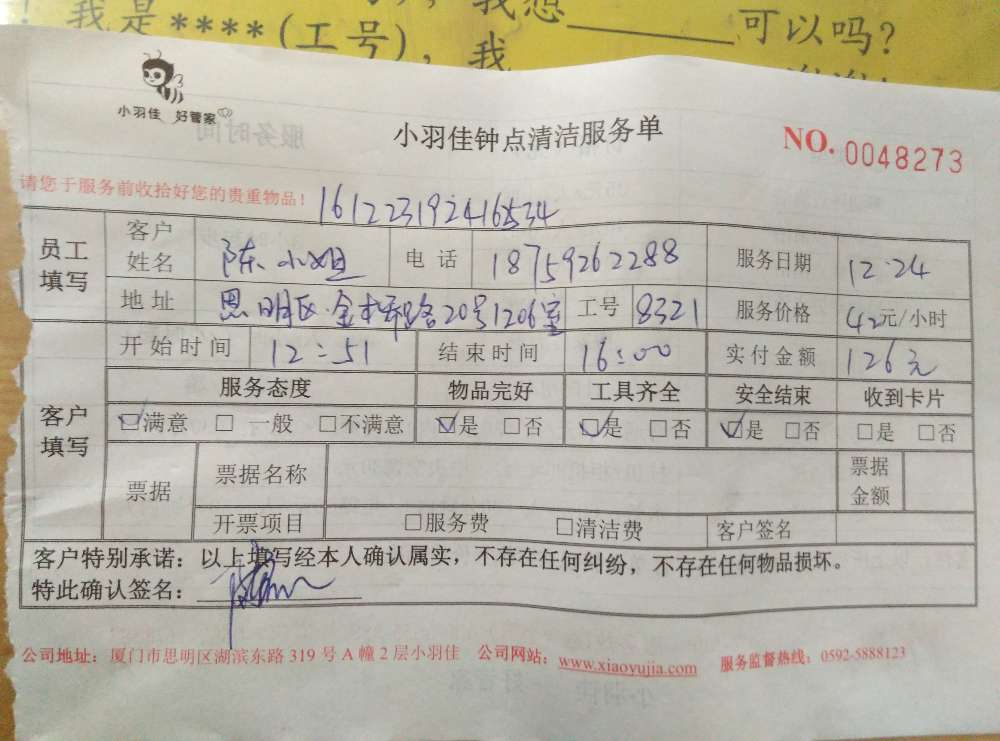 我是****(工号)，我想______可以吗？
我
小羽佳 好管家
小羽佳钟点清洁服务单
NO. 0048273
请您于服务前收拾好您的贵重物品！
161223192416534
员工填写 客户姓名 陈小姐 电话 18759262288 服务日期 12·24
地址 思明区金桥路20号1206室 工号 8321 服务价格 42元/小时
开始时间 12:51 结束时间 16:00 实付金额 126元
客户填写 服务态度 物品完好 工具齐全 安全结束 收到卡片
☑满意 □一般 □不满意 ☑是 □否 ☑是 □否 ☑是 □否 □是 □否
票据 票据名称 票据金额
开票项目 □服务费 □清洁费 客户签名
客户特别承诺：以上填写经本人确认属实，不存在任何纠纷，不存在任何物品损坏。
特此确认签名：
公司地址：厦门市思明区湖滨东路319号A幢2层小羽佳 公司网站：www.xiaoyujia.com 服务监督热线：0592-5888123